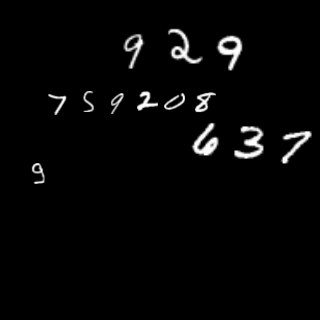 929
759208
637
9